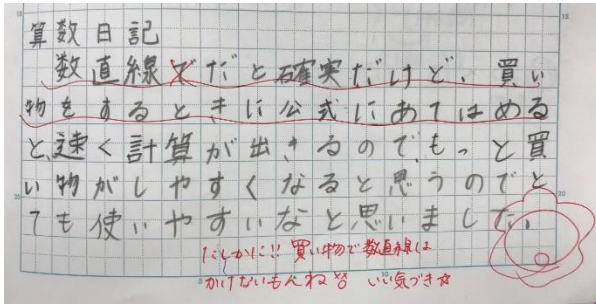 算数日記
数直線だと確実だけど、買い
物をするときに公式にあてはめる
と、速く計算が出きるので、もっと買
い物がしやすくなると思うのでと
ても使いやすいなと思いました。
たしかに!! 買い物で数直線は
かけないもんね いい気づき☆
15
15
20
20